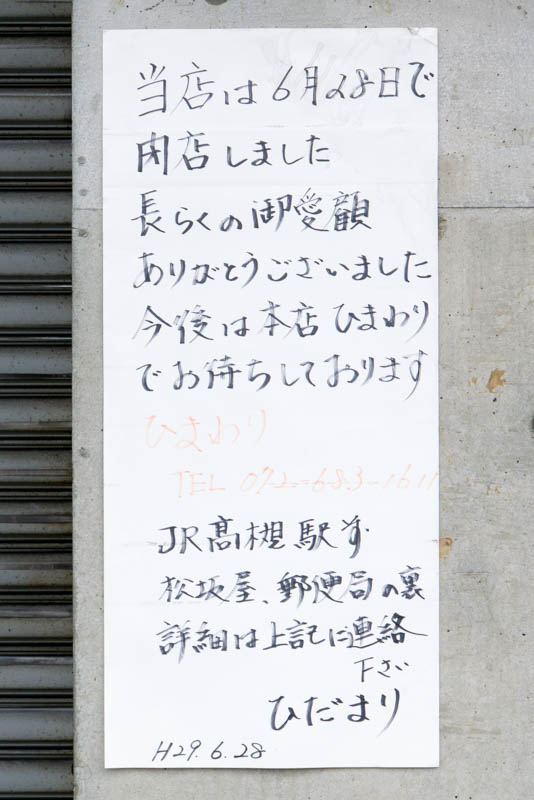 当店は6月28日で
閉店しました
長らくの御愛顧
ありがとうございました
今後は本店ひまわり
でお待ちしております
ひまわり
TEL 072-683-1611
JR髙槻駅
松坂屋、郵便局の裏
詳細は上記に連絡
下さい
ひだまり
H29.6.28